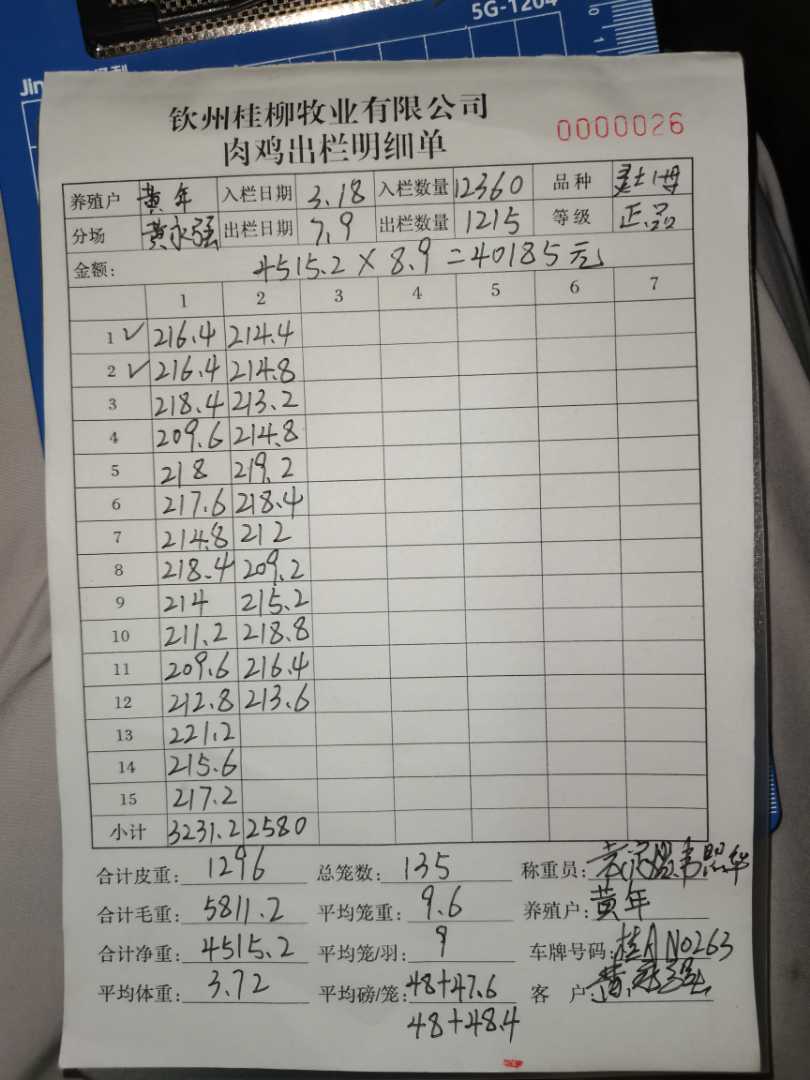 5G-1204
Jin
钦州桂柳牧业有限公司
肉鸡出栏明细单
0000026
养殖户 黄年 入栏日期 3.18 入栏数量 12360 品种
分场 黄永强 出栏日期 7.9 出栏数量 1215 等级 正品
金额: 4515.2 × 8.9 = 40185元
1 2 3 4 5 6 7
1 ✓ 216.4 214.4
2 ✓ 216.4 214.8
3 218.4 213.2
4 209.6 214.8
5 218 219.2
6 217.6 218.4
7 214.8 212
8 218.4 209.2
9 214 215.2
10 211.2 218.8
11 209.6 216.4
12 212.8 213.6
13 221.2
14 215.6
15 217.2
小计 3231.2 2580
合计皮重: 1296 总笼数: 135 称重员:
合计毛重: 5811.2 平均笼重: 9.6 养殖户: 黄年
合计净重: 4515.2 平均笼/羽: 9 车牌号码: 桂A N0263
平均体重: 3.72 平均磅/笼: 48+47.6 客户: 黄永强
48+48.4